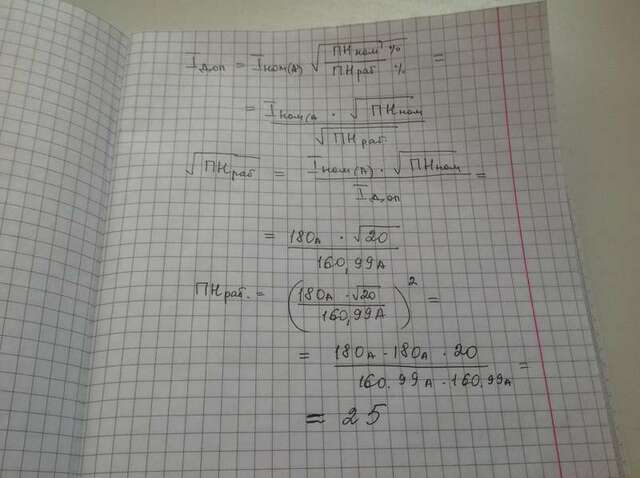 I д.оп = I ном(А) √ ПНном % / ПНраб % =
= I ном(А · √ПНном / √ПНраб.
√ПНраб = I ном(А) · √ПНном / I д.оп =
= 180А · √20 / 160,99А
ПНраб. = (180А · √20 / 160,99А)² =
= 180А · 180А · 20 / 160.99А · 160,99А =
= 25